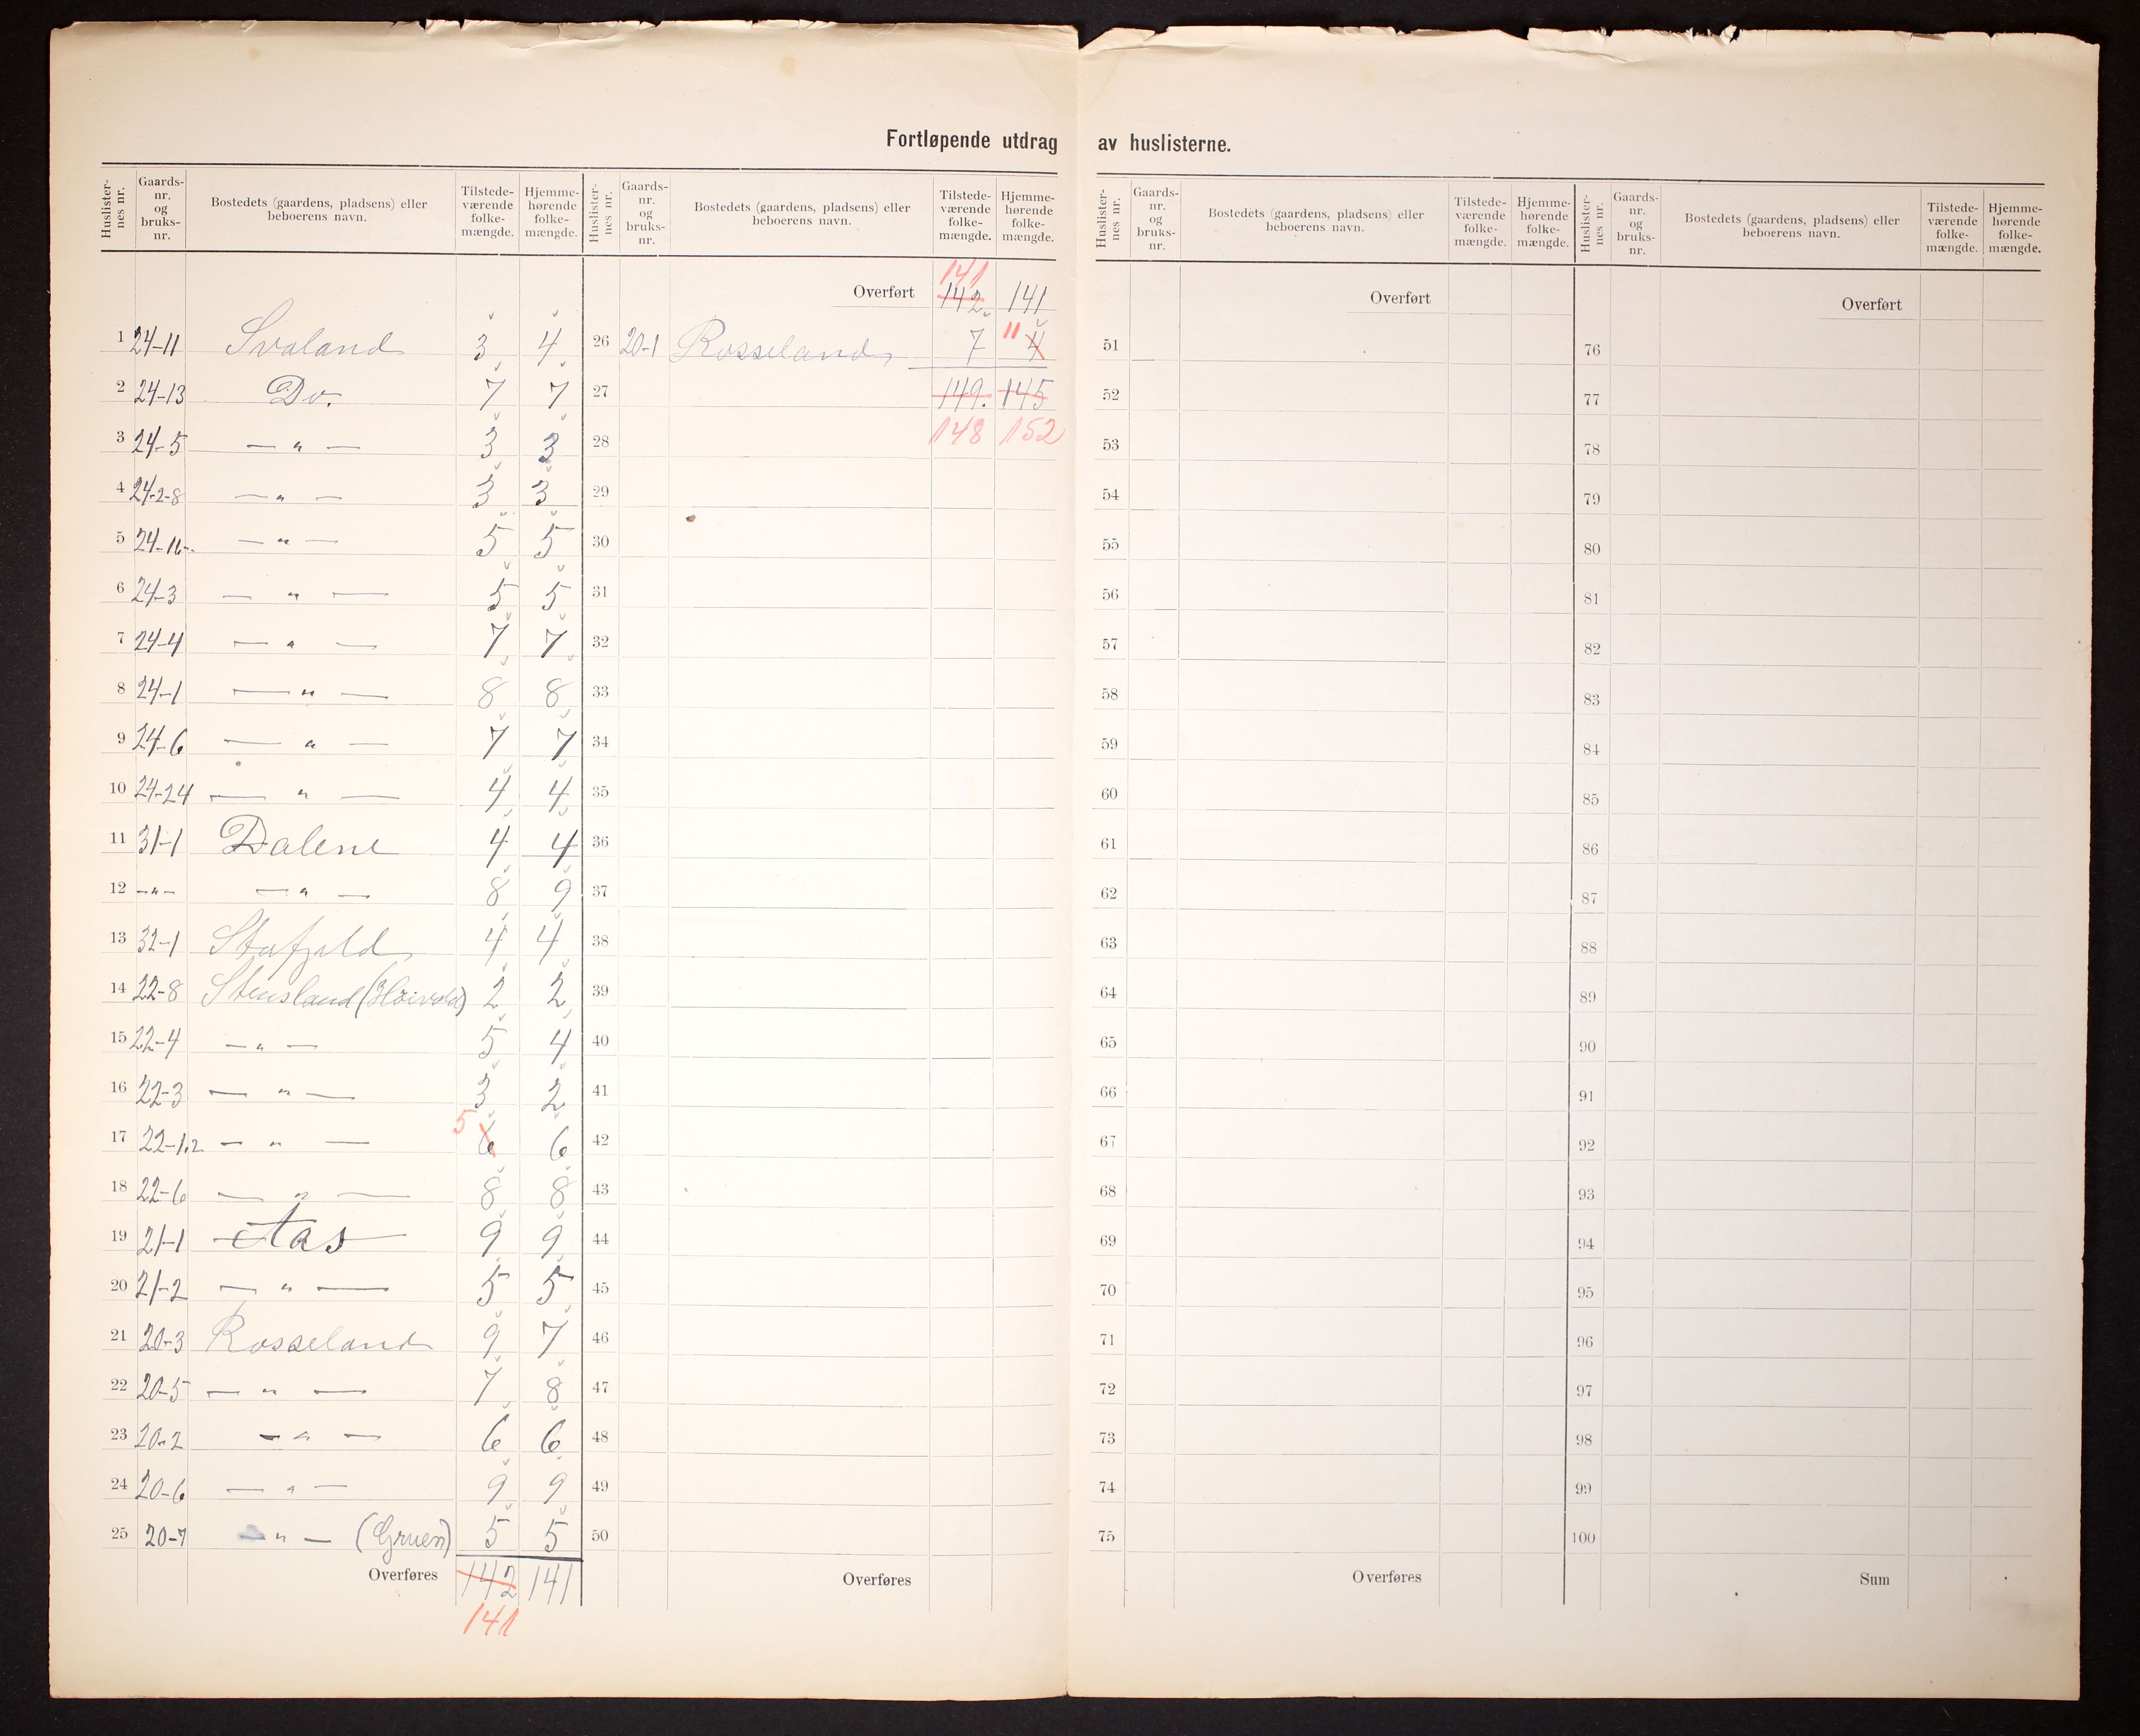 Fortløpende utdrag av huslisterne.
Huslisternes nr. Gaards-nr. og bruks-nr. Bostedets (gaardens, pladsens) eller beboerens navn. Tilstede-værende folke-mængde. Hjemme-hørende folke-mængde. Huslister-nes nr. Gaards-nr. og bruks-nr. Bostedets (gaardens, pladsens) eller beboerens navn. Tilstede-værende folke-mængde. Hjemme-hørende folke-mængde. Huslister-nes nr. Gaards-nr. og bruks-nr. Bostedets (gaardens, pladsens) eller beboerens navn. Tilstede-værende folke-mængde. Hjemme-hørende folke-mængde. Huslister-nes nr. Gaards-nr. og bruks-nr. Bostedets (gaardens, pladsens) eller beboerens navn. Tilstede-værende folke-mængde. Hjemme-hørende folke-mængde.
141
Overført 142 141 Overført Overført
1 24-11 Svaland 3 4 26 20-1 Rosseland 7 11 4 51 76
2 24-13 Do. 7 7 27 149. 145 52 77
3 24-5 — " — 3 3 28 148 152 53 78
4 24-2-8 — " — 3 3 29 54 79
5 24-16- — " — 5 5 30 55 80
6 24-3 — " — 5 5 31 56 81
7 24-4 — " — 7 7 32 57 82
8 24-1 — " — 8 8 33 58 83
9 24-6 — " — 7 7 34 59 84
10 24-24 — " — 4 4 35 60 85
11 31-1 Dalene 4 4 36 61 86
12 -"- — " — 8 9 37 62 87
13 32-1 Stafjeld 4 4 38 63 88
14 22-8 Stensland 2 2 39 64 89
15 22-4 — " — 5 4 40 65 90
16 22-3 — " — 3 2 41 66 91
17 22-1,2 — " — 5 6 6 42 67 92
18 22-6 — " — 8 8 43 68 93
19 21-1 Aas 9 9 44 69 94
20 21-2 — " — 5 5 45 70 95
21 20-3 Rosseland 9 7 46 71 96
22 20-5 — " — 7 8 47 72 97
23 20-2 — " — 6 6 48 73 98
24 20-6 — " — 9 9 49 74 99
25 20-7 — " — (Gruen) 5 5 50 75 100
Overføres 142 141 Overføres Overføres Sum
141